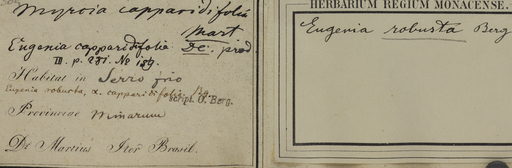 Myrcia capparidifolia
Mart
Eugenia capparidifolia DC. prod.
III. p. 281. No 189.
Habitat in Serro frio
Eugenia robusta, α. capparidifolia Bg.
script. O. Berg.
Provinciae Minarum
De Martius Iter Brasil.
HERBARIUM REGIUM MONACENSE.
Eugenia robusta Berg